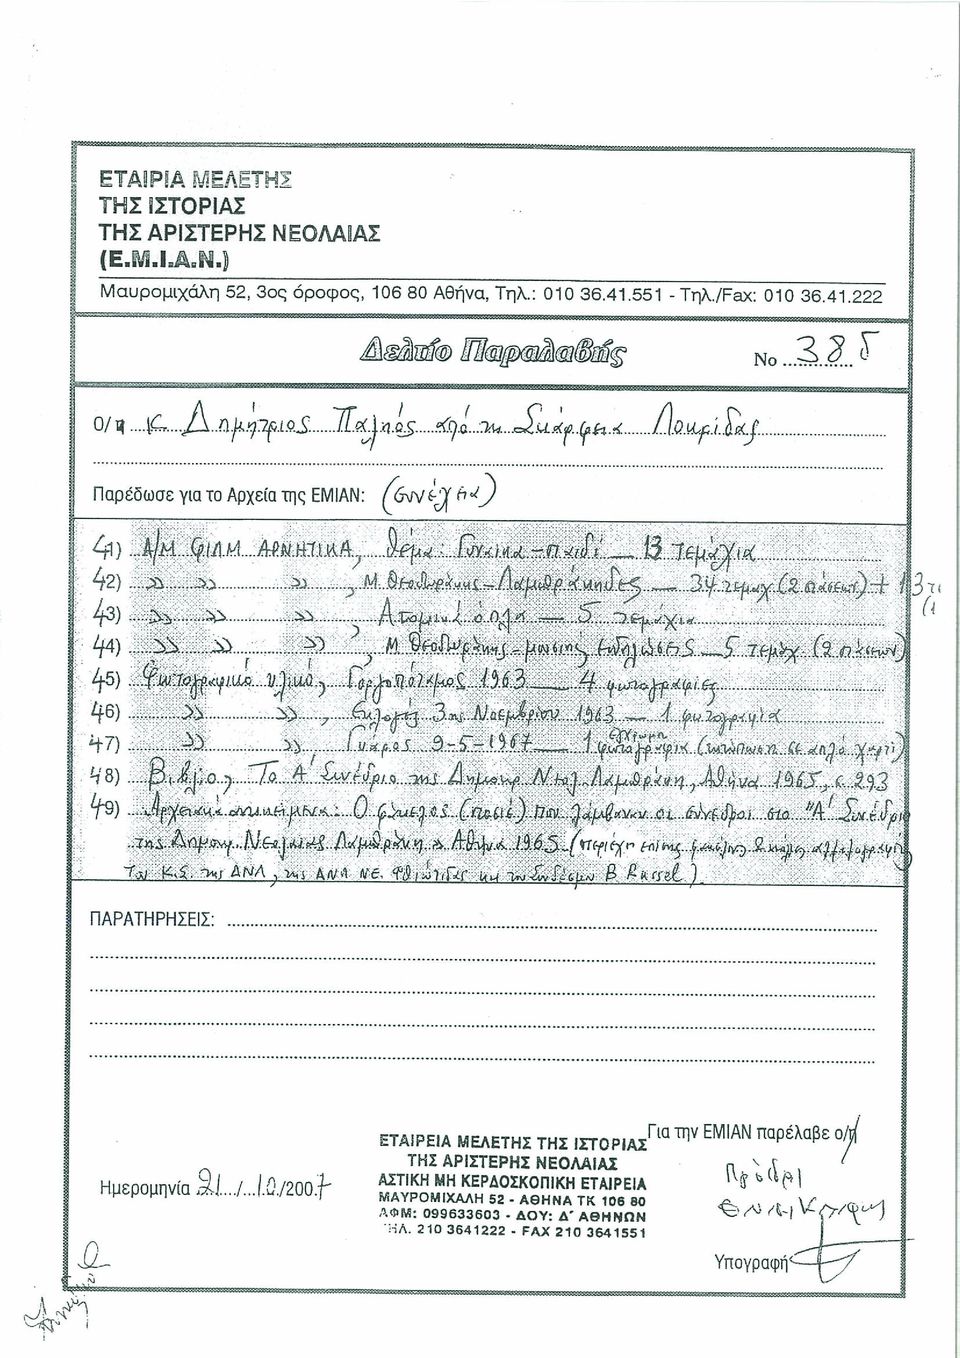 ΕΤΑΙΡΙΑ ΜΕΛΕΤΗΣ
ΤΗΣ ΙΣΤΟΡΙΑΣ
ΤΗΣ ΑΡΙΣΤΕΡΗΣ ΝΕΟΛΑΙΑΣ
(Ε.Μ.Ι.Α.Ν.)
Μαυρομιχάλη 52, 3ος όροφος, 106 80 Αθήνα, Τηλ.: 010 36.41.551 - Τηλ./Fax: 010 36.41.222
Δελτίο Παραλαβής
Νο 385
Ο/η κ. Δημήτριος Παληός από τη Σκάρφεια Λοκρίδας
Παρέδωσε για το Αρχεία της ΕΜΙΑΝ: (συνέχεια)
41) Α/Μ ΦΙΛΜ ΑΡΝΗΤΙΚΑ, θέμα: Γυναίκα - παιδί — 13 τεμάχια
42) » » » , Μ. Θεοδωράκης - Λαμπράκηδες — 34 τεμαχ. (2 πόσεων) + 13
43) » » » , Ατομικά όπλα — 5 τεμάχια
44) » » » , Μ. Θεοδωράκης - μουσικές εκδηλώσεις — 5 τεμάχ. (2 πόσεων)
45) Φωτογραφικό υλικό, Γοργοπόταμος 1963 — 4 φωτογραφίες
46) » » , Εκλογές 3ης Νοεμβρίου 1963 — 1 φωτογραφία
47) » » , Γυάρος 9-5-1967 — 1 έγχρωμη φωτογραφία (εκτύπωση σε απλό χαρτί)
48) Βιβλίο, Το Α' Συνέδριο της Δημοκρ. Νεολ. Λαμπράκη, Αθήνα 1965, σ. 293
49) Αρχειακά αντικείμενα: Ο φάκελος (ποσέτ) που λάμβαναν οι σύνεδροι στο "Α' Συνέδριο
της Δημοκρ. Νεολαίας Λαμπράκη", Αθήνα 1965 (περιέχει επίσης αλληλογραφία
του Κ.Σ. της ΔΝΛ, της ΔΝΛ Ν.Ε. Φθιώτιδας και του Συνδέσμου B. Russel)
ΠΑΡΑΤΗΡΗΣΕΙΣ:
Για την ΕΜΙΑΝ παρέλαβε ο/η
ΕΤΑΙΡΕΙΑ ΜΕΛΕΤΗΣ ΤΗΣ ΙΣΤΟΡΙΑΣ
ΤΗΣ ΑΡΙΣΤΕΡΗΣ ΝΕΟΛΑΙΑΣ
ΑΣΤΙΚΗ ΜΗ ΚΕΡΔΟΣΚΟΠΙΚΗ ΕΤΑΙΡΕΙΑ
ΜΑΥΡΟΜΙΧΑΛΗ 52 - ΑΘΗΝΑ ΤΚ 106 80
ΑΦΜ: 099633603 - ΔΟΥ: Δ' ΑΘΗΝΩΝ
ΤΗΛ. 210 3641222 - FAX 210 3641551
Ημερομηνία 21/10/2007
Υπογραφή